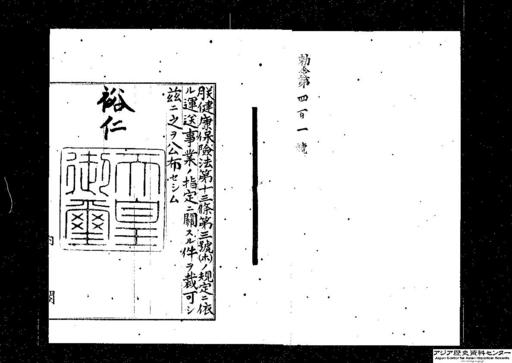 勅令第四百一號
朕健康保險法第十三條第三號(ホ)ノ規定ニ依
ル運送事業ノ指定ニ關スル件ヲ裁可シ
茲ニ之ヲ公布セシム
裕仁
天皇
御璽
内
閣
アジア歴史資料センター
Japan Center for Asian Historical Records